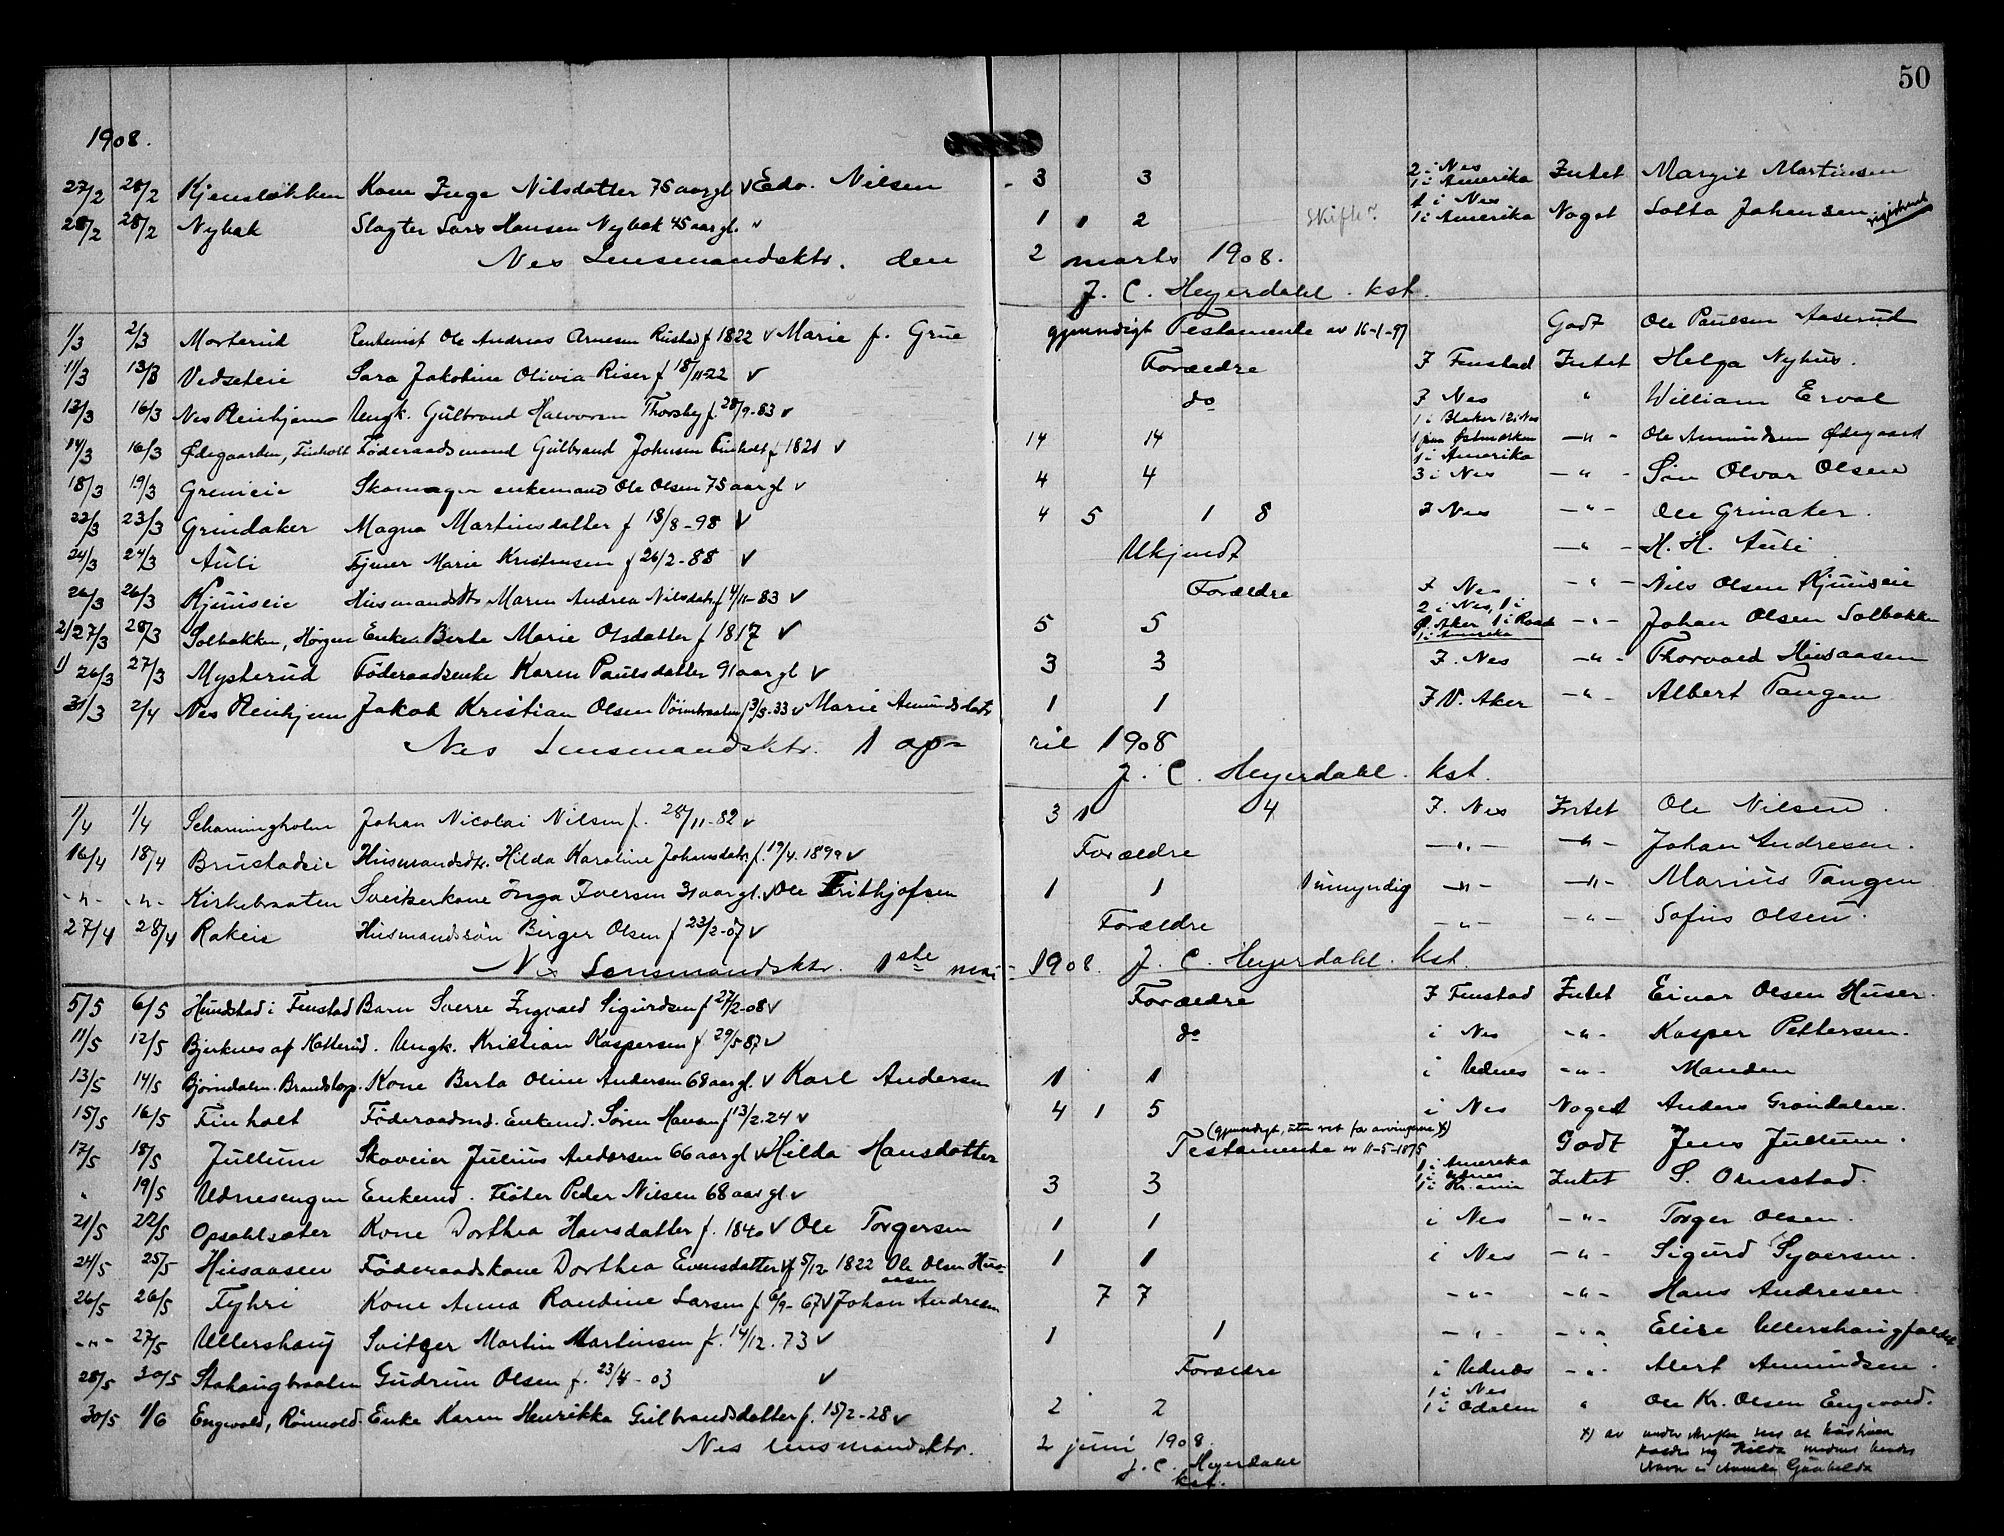 50
1908.
27/2 28/2 Kjensløkken Kone Inge Nilsdatter 75 aar gl. v Edv. Nilsen - 3 3 2 i Nes 1 i Amerika Intet Margit Martinsen
28/2 28/2 Nybak Slagter Lars Hansen Nybak 45 aar gl. v 1 1 2 Skifte? 1 i Nes 1 i Amerika Noget Lotta Johansen
Nes Lensmandsktr. den 2 marts 1908.
J. C. Heyerdahl. kst.
1/3 2/3 Morterud Rentenist Ole Andreas Arnesen Rustad f 1822 v Marie f. Grue gjensidigt Testamente av 16-1-97 Godt Ole Paulsen Aaserud
11/3 13/3 Vedseteie Sara Jakobine Olivia Riser f 18/11-22 v Forældre I Fenstad Intet Helga Nyhus.
13/3 16/3 Nes Pleiehjem Ungk. Gulbrand Halvorsen Thorsby f. 28/9-83 v do I Nes " William Erval
14/3 16/3 Ødegaarden, Finholt Föderaadsmand Gulbrand Johnsen Finholt f 1821 v 14 14 1 i Blaker 12 i Nes 1 paa Østmarken 1 i Amerika -"- Ole Amundsen Ødegaard
18/3 19/3 Grenieie Skomager enkemand Ole Olsen 75 aar gl v 4 4 3 i Nes -"- Sön Olvar Olsen
22/3 23/3 Grindaker Magna Martinsdatter f 18/8-98 v 4 5 1 8 I Nes -"- Ole Grinaker.
24/3 24/3 Auli Tjener Marie Kristensen f 26/2-88 v Ukjendt -"- H. H. Auli
26/3 26/3 Kjuuseie Husmandsdtr Maren Andrea Nilsdatr. f 4/11-83 v Forældre I Nes -"- Nils Olsen Kjuuseie
2) 27/3 28/3 Solbakken, Høgne Enke Berte Marie Olsdatter f 1817 v 5 5 2 i Nes, 1 i Ø. Aker 1 i Raade 1 i Amerika -"- Johan Olsen Solbakken
1) 26/3 27/3 Mysterud Föderaadsenke Karen Paulsdatter 91 aar gl v 3 3 I. Nes -"- Thorvald Husaasen
31/3 2/4 Nes Pleiehjem Jakob Kristian Olsen f 3/3-33 v Marie Amundsdatr 1 1 I V. Aker -"- Albert Tangen
Nes Lensmandsktr. 1 april 1908
J. C. Heyerdahl. kst.
1/4 1/4 Scharningholm Johan Nicolai Nilsen f. 28/11-82 v 3 1 4 I. Nes Intet Ole Nilsen.
16/4 18/4 Brustadeie Husmandsdtr. Hilda Karoline Johansdatr f. 19/4. 1899 v Forældre -"- -"- Johan Andresen.
-"- -"- Kirkebraaten Sveitserkone Inga Iversen 31 aar gl. v Ole Frithjofsen 1 1 1 umyndig -"- -"- Marius Tangen
27/4 28/4 Rakeie Husmandssön Birger Olsen f 23/2-07 v Forældre -"- -"- Sofus Olsen.
Nes Lensmandsktr. 1ste mai 1908. J. C. Heyerdahl. kst.
5/5 6/5 Hundstad i Fenstad Barn Sverre Ingvald Sigurdsen f 27/2-08 v Forældre I Fenstad Intet Einar Olsen Huser.
11/5 12/5 Bjerknes af Hatterud. Ungk. Kristian Kaspersen f 29/5 87 v do i Nes -"- Kasper Pettersen.
13/5 14/5 Björndalen. Brandstorp. Kone Berta Oline Andersen 68 aar gl. v Karl Andersen 1 1 i Udnes -"- Manden
15/5 16/5 Finholt Föderaadsmd. Enkemd. Sören Hansen f 13/2.24 v 4 1 5 i Nes Noget Anders Gröndalen.
17/5 18/5 Jullum Skoveier Julius Andersen 66 aar gl v Hilda Hansdatter (gjensidigt, uten ret for arvingerne x) Testamente av 11-5-1875 Godt Jens Jullum.
" 19/5 Udnesengen Enkemd. Fløter Peder Nilsen 68 aar gl v 3 3 1 i Amerika 1 i Udnes 1 i Kr.ania Intet S. Ornstad.
21/5 22/5 Opsahlsæter Kone Dorthea Hansdatter f. 1840 v Ole Torgersen 1 1 i Nes -"- Torger Olsen.
24/5 25/5 Husaasen Föderaadskone Dorthea Evensdatter v f 5/12 1822 Ole Olsen Husaasen 1 1 i Nes -"- Sigurd Syversen.
26/5 26/5 Fyhri Kone Anna Randine Larsen f 6/9-67 v Johan Andresen 7 7 -"- -"- Hans Andresen.
-"- 27/5 Ullershaug Svitzer Martin Martinsen f. 14/12.73 v 1 1 -"- -"- Elise Ullershaugfaldet
28/5 30/5 Stohaugbraaten Gudrun Olsen f. 23/4-03 v Forældre i Udnes -"- Alert Amundsen.
30/5 1/6 Engvold, Rönnold. Enke Karen Henrikka Gulbrandsdatter f. 15/2-28 v 2 2 1 i Nes 1 i Odalen " Ole Kr. Olsen Engvold.
Nes lensmandsktr. 2 juni 1908.
J. C. Heyerdahl
kst.
x) av underskriften sees at hustruen
kalder sig Hilda medens hendes
Navn er Gunhilda